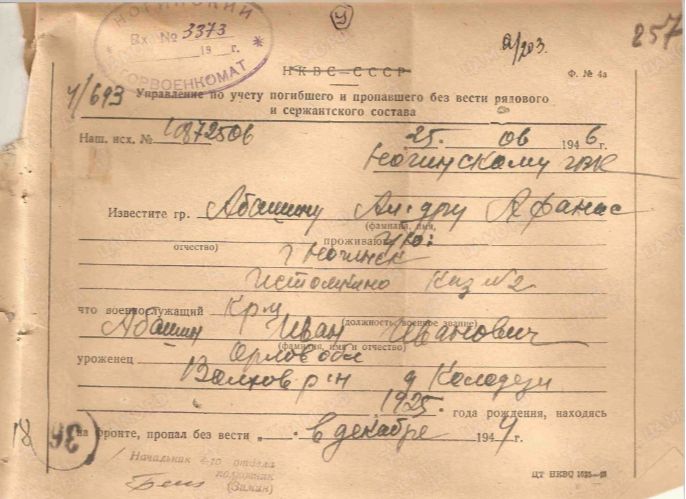 НОГИНСКИЙ
Вх. № 3373
19 г.
ГОРВОЕНКОМАТ
У
а/203.
257
НКВС—СССР
Ф. № 4а
у/693
Управление по учету погибшего и пропавшего без вести рядового
и сержантского состава
Наш. исх. № 1087250б
25. 0в 1946г.
Ногинскому гвк
Известите гр. Абашину Андру Афанас
(фамилия, имя,
отчество) проживающ ую:
г Ногинск
Истомкино Каз №2
что военнослужащий Кр-ц
(должность, военное звание)
Абашин Иван Иванович
(фамилия, имя и отчество)
уроженец Орлов обл
Волхов. р-н д Колодези
1925. года рождения, находясь
на фронте, пропал без вести „ - в декабре 1944г.
36
18
Начальник 4-го отдела
полковник
ЦТ НКВС